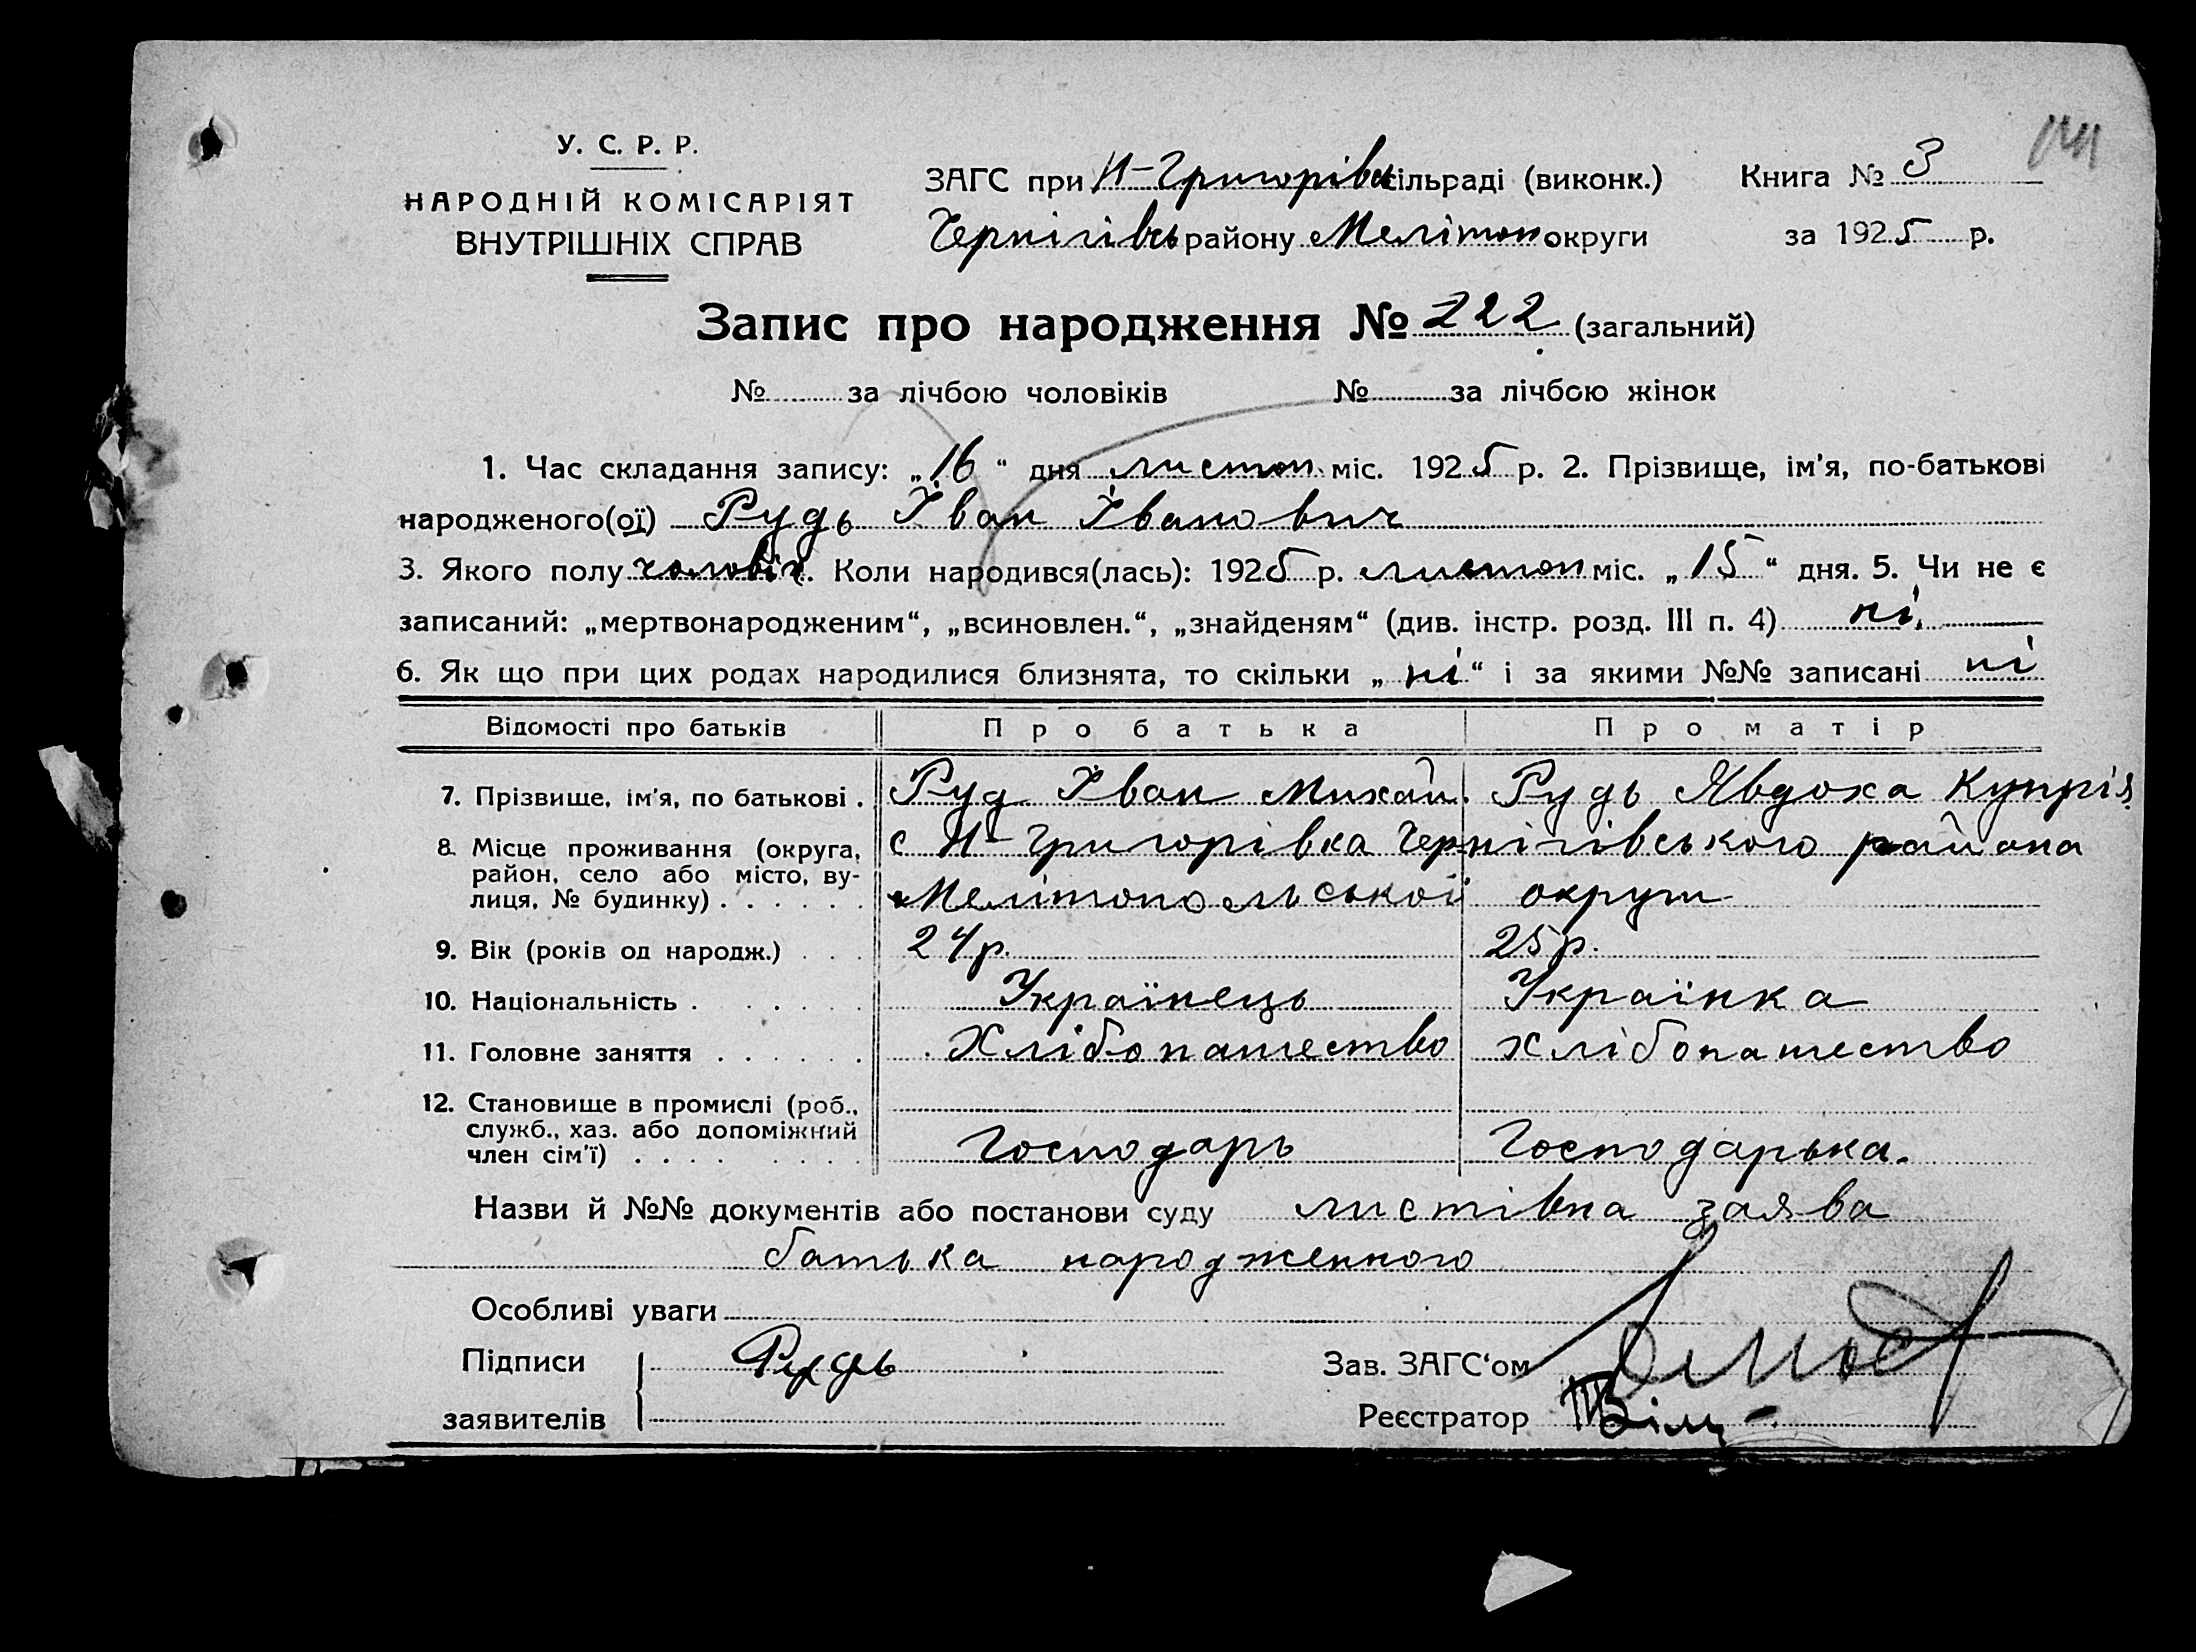 У. С. Р. Р.
НАРОДНІЙ КОМІСАРІЯТ
ВНУТРІШНІХ СПРАВ
ЗАГС при Н-Григорівс сільраді (виконк.)
Чернігівсь району Мелітоп округи
Книга № 3
за 1925 р.
Запис про народження № 222 (загальний)
№ за лічбою чоловіків № за лічбою жінок
1. Час складання запису: „16“ дня листоп. міс. 1925 р. 2. Прізвище, ім'я, по-батькові
народженого(ої) Рудь Іван Іванович
3. Якого полу чоловіч. Коли народився(лась): 1925 р. листоп міс. „15“ дня. 5. Чи не є
записаний: „мертвонародженим“, „всиновлен.“, „знайденям“ (див. інстр. розд. III п. 4) ні.
6. Як що при цих родах народилися близнята, то скільки „ні“ і за якими №№ записані ні
Відомості про батьків Про батька Про матір
7. Прізвище, ім'я, по батькові . Руд Іван Михай. Рудь Явдоха Купрія
8. Місце проживання (округа, район, село або місто, вулиця, № будинку) . . . . . .
с Н-Григорівка Чернігівського района
Мелітопольської округи
9. Вік (років од народж.) . . . 24р. 25р.
10. Національність . . . . . . Українець Украінка
11. Головне заняття . . . . . . Хлібопашество хлібопашество
12. Становище в промислі (роб., служб., хаз. або допоміжний член сім'ї) . . . . . . . .
Господарь Господарька.
Назви й №№ документів або постанови суду листівна заява
батька народженного
Особливі уваги
Підписи Рудь
заявителів
Зав. ЗАГС'ом
Реєстратор